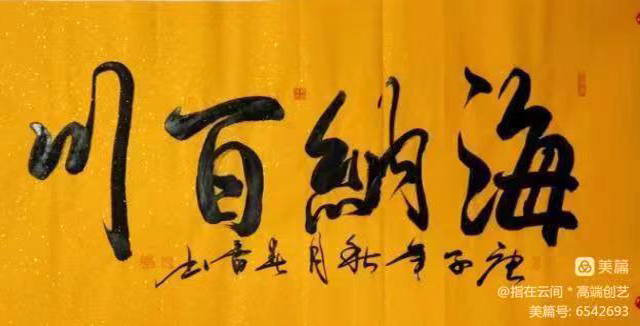 海納百川
庚子年秋月
美篇
@指在云间 * 高端创艺
美篇号: 6542693